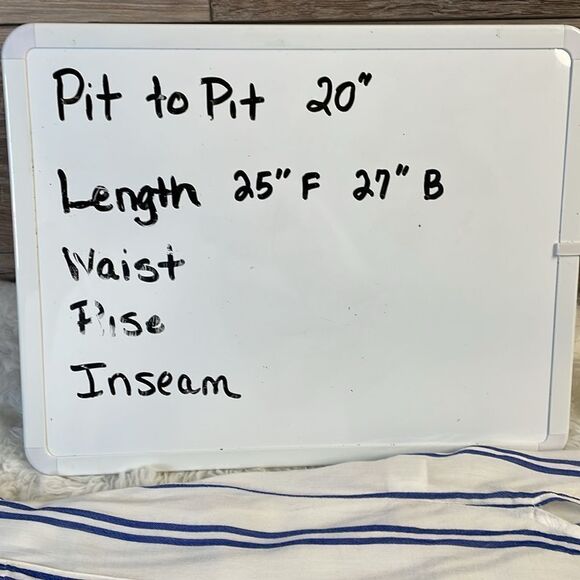 Pit to Pit 20"
Length 25" F 27" B
Waist
Rise
Inseam